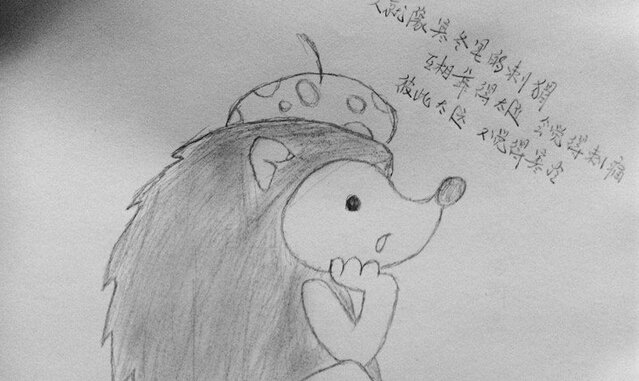 就像寒冬里的刺猬
互相靠得太近 会觉得刺痛
彼此太远 又觉得寒冷